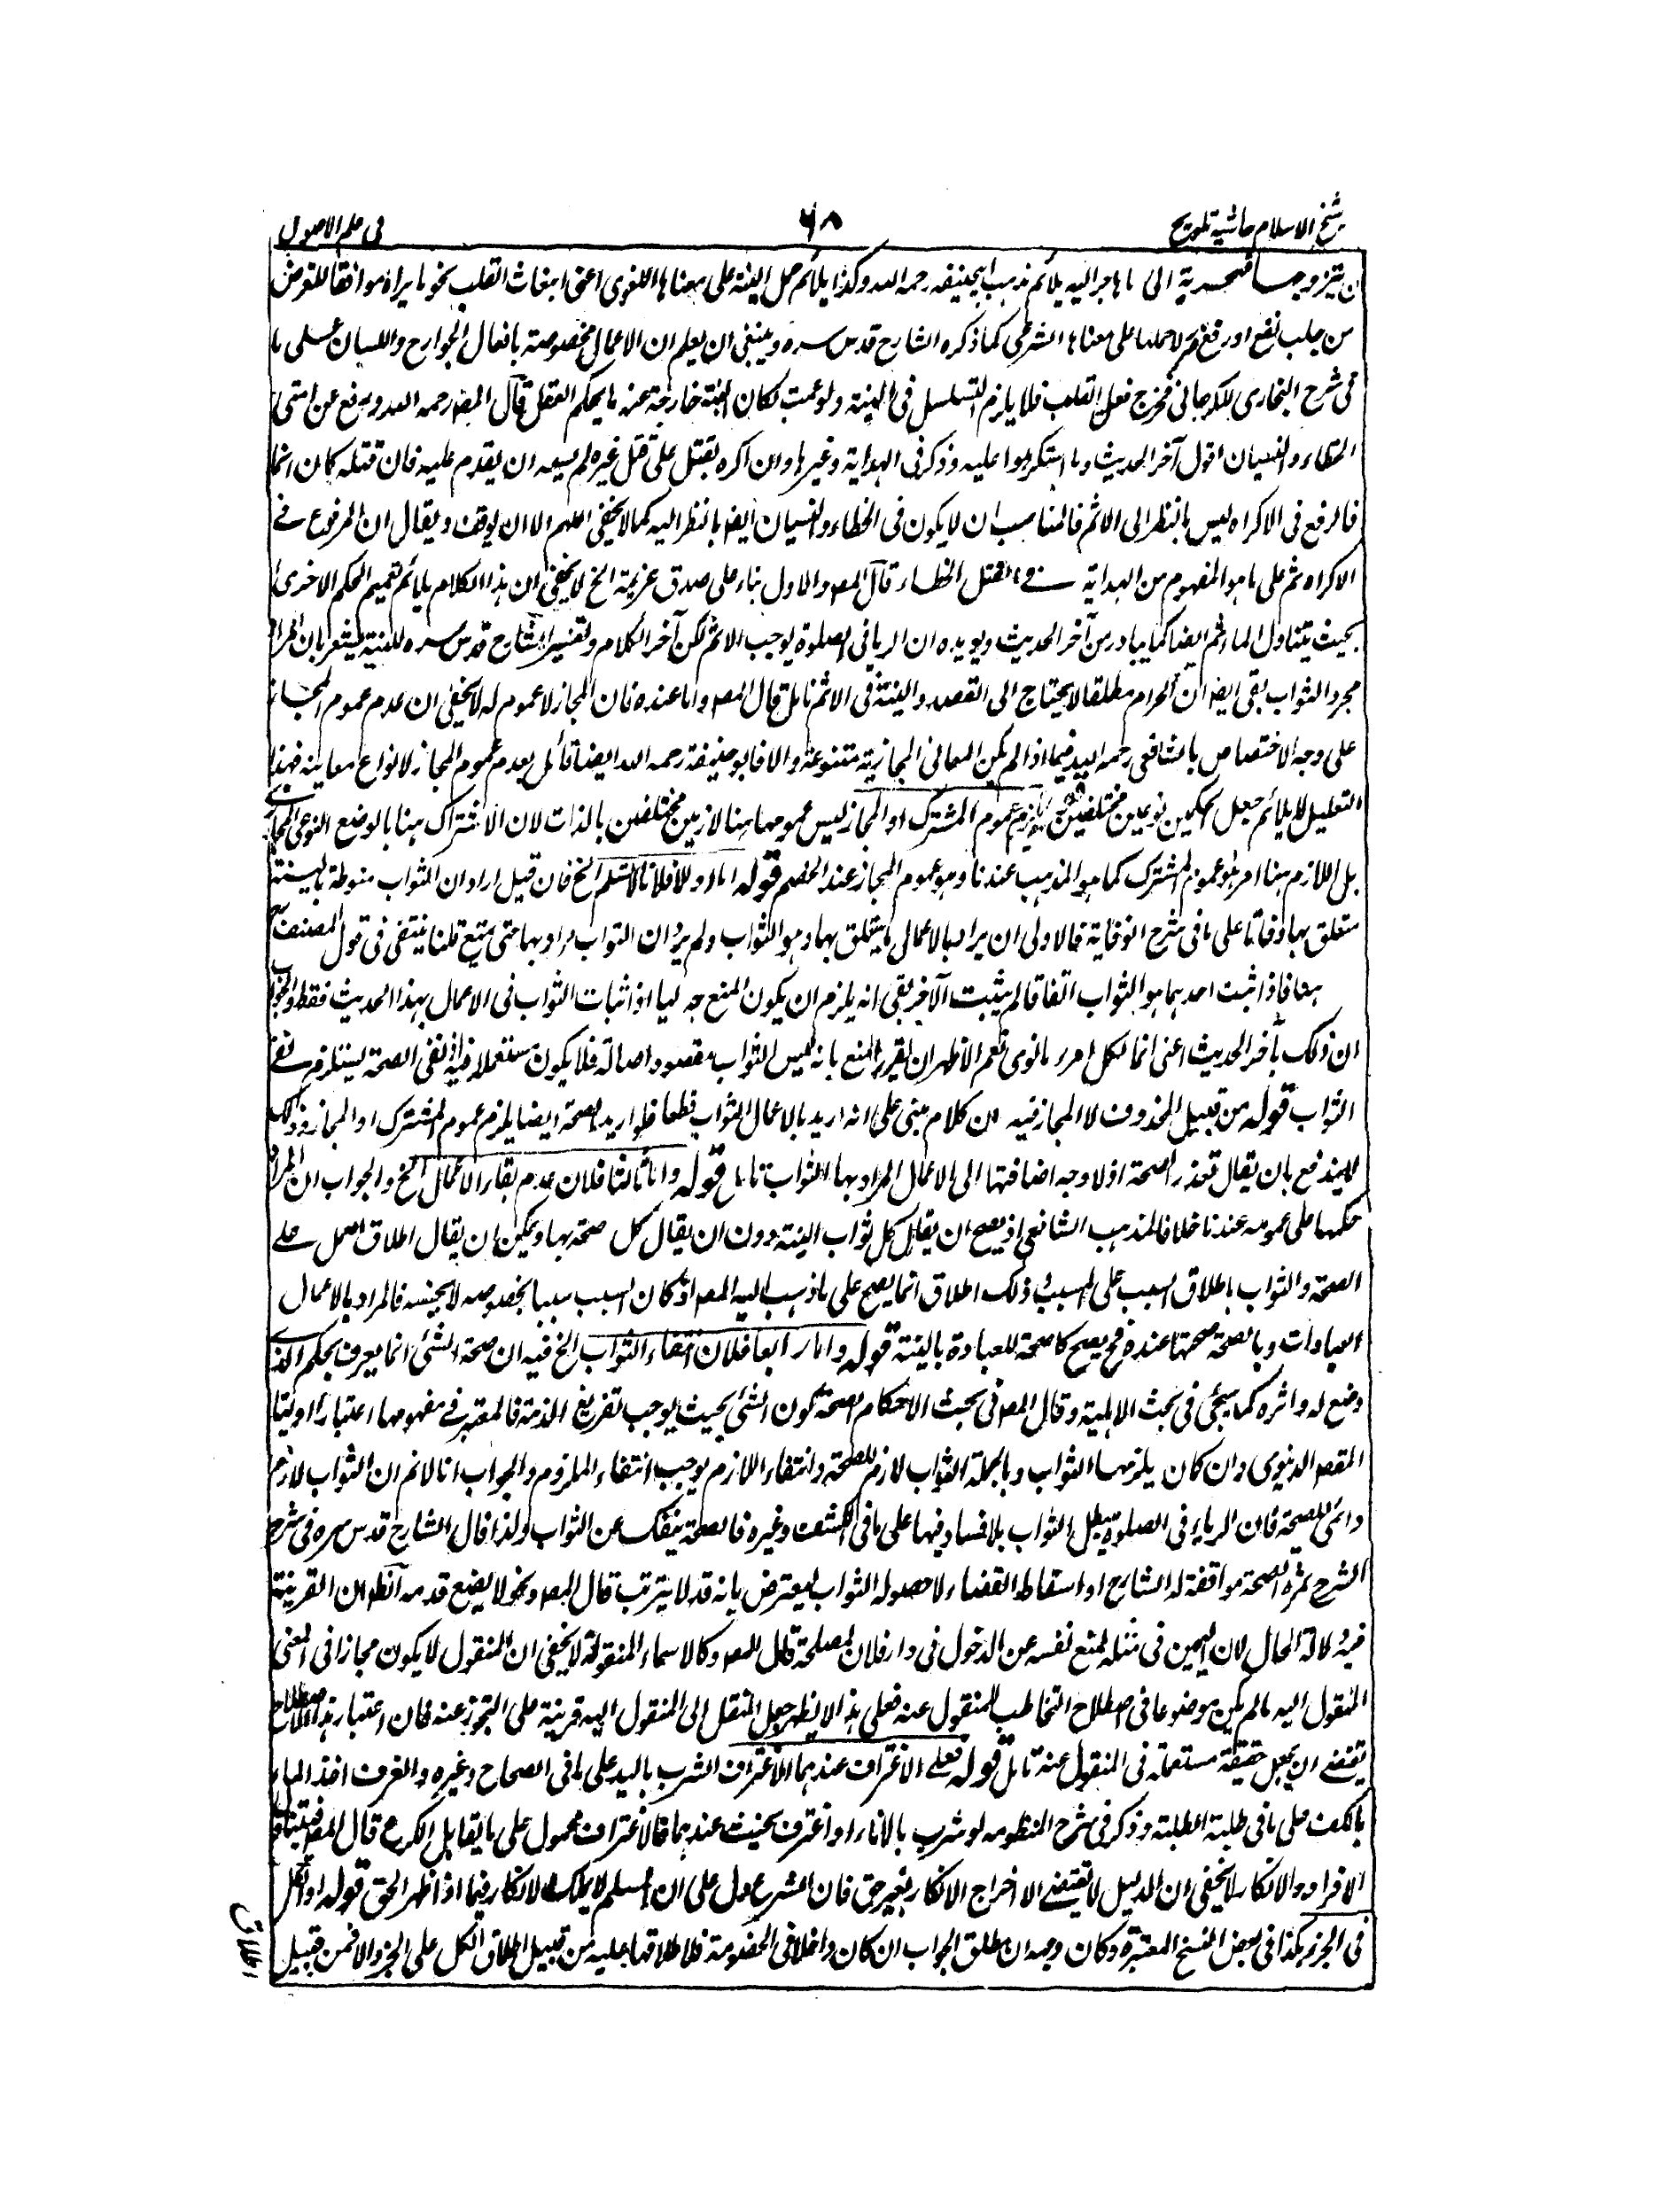 شيخ الاسلام حاشية تلويح ٦٨ فى علم الاصول
ن يتزوجها فهجرته الى ما هاجر اليه يلائم مذهب ابيحنيفه رحمه الله وكذا يلائم حمل النية على معناها اللغوى اعنى انبعاث القلب نحو ما يراه موافقا للغرض
من جلب نفع او رفع ضر لا حملها على معناها الشرعى كما ذكره الشارح قدس سره وينبغى ان يعلم ان الاعمال مخصوصة بافعال الجوارح واللسان على ما
فى شرح البخارى للكرمانى فخرج فعل القلب فلا يلزم التسلسل فى النية ولو عمت لكان النية خارجة عنه بحكم العقل قال المص رحمه الله ورفع عن امتى
الخطاء والنسيان اقول آخر الحديث وما استكرهوا عليه وذكر فى الهداية وغيرها وان اكره بقتل على قتل غيره لم يسعه ان يقدم عليه فان قتله كان آثما
فالرفع فى الاكراه ليس بالنظر الى الاثم فالمناسب ان لا يكون فى الخطاء والنسيان ايضا بالنظر اليه كما لا يخفى اللهم الا ان يوقف ويقال ان المرفوع فے
الاكراه ثم على ما هو المفهوم من الهداية فے القتل الخطاء قال المص والاول بناء على صدق عزيمة الخ لا يخفى ان هذا الكلام يلائم تعميم الحكم الاخرى
بحيث يتناول الماثم ايضا كما يبادر من آخر الحديث ويويده ان الريا فى الصلوة يوجب الاثم لكن آخر الكلام وتفسير الشارح قدس سره للنية يشعر بان المراد
مجرد الثواب بقى ايضا ان الحرام مطلقا لا يحتاج الى القصد والنية فى الاثم تامل قال المص واما عنده فان المجاز لا عموم له لا يخفى ان عدم عموم المجاز
على وجه الاختصاص بالشافعى رحمه الله فيما اذا لم يكن المعانى المجازية متنوعة والا فابو حنيفة رحمه الله ايضا قائل بعدم عموم المجاز لانواع معانيه فهذا
التعليل لا يلائم جعل الحكمين نوعين مختلفين يلزم عموم المشترك او المجاز ليس عمومهما هنا لازمين مختلفين بالذات لان الاشتراك هنا بالوضع النوعى المجازے
بل اللازم هنا امر هو عموم المشترك كما هو المذهب عندنا وهو عموم المجاز عند الخصم قوله اما اولا فلانا لا نسلم الخ فان قيل اراد ان الثواب منوطة بالنية
متعلق بها وفاقا على ما فى شرح الوقاية فالاولى ان يراد بالاعمال ما يتعلق بها وهو الثواب ولم يرد ان الثواب مراد بها حتى يمنع قلنا ينتفى فى قول المصنف
هنا فاذا ثبت احدهما هو الثواب اتفاقا لم يثبت الآخر بقى انه يلزم ان يكون المنع جدليا اذ اثبات الثواب فى الاعمال بهذا الحديث فقط والجواب
ان ذلك بآخر الحديث اعنى انما لكل امرء ما نوى نعم الاظهر ان يقرر المنع بانه ليس الثواب مقصودا اصالة فلا يكون مستعملا فيه اذ نفى الصحة يستلزم نفى
الثواب قوله من قبيل المحذوف لا المجاز فيه ان كلام مبنى على انه اريد بالاعمال الثواب قطعا فلو اريد الصحة ايضا يلزم عموم المشترك او المجاز وذلك
لا يندفع بان يقال تقدر الصحة اذ لا وجه اضافتها الى الاعمال المراد بها الثواب تامل قوله واما ثالثا فلان عدم بقاء الاعمال الخ والجواب ان المراد
حكمها على عمومه عندنا خلافا لمذهب الشافعى اذ يصح ان يقال كل ثواب النية دون ان يقال كل صحة بها ويمكن ان يقال اطلاق العمل على
الصحة والثواب باطلاق السبب على المسبب ذلك اطلاق انما يصح على ما ذهب اليه المص اذا كان السبب سببا بخصوصه لا بجنسه فالمراد بالاعمال
العبادات وبالصحة صحتها عنده فح يصح كل صحة للعبادة بالنية قوله واما رابعا فلان انتفاء الثواب الخ فيه ان صحة الشئ انما يعرف بحكم الذے
وضع له واثره كما سيجئ فى بحث الاهلية وقال المص فى بحث الاحكام الصحة كون الشئ بحيث يوجب تفريغ الذمة فالمعتبر فے مفهومها اعتبارا اوليا
المقصد الدنيوى وان كان يلزمها الثواب وبالجملة الثواب لازم للصحة وانتفاء اللازم يوجب انتفاء الملزوم والجواب انا لا نم ان الثواب لازم
دائمى للصحة فان الرياء فى الصلوة يبطل الثواب بلا فساد فيها على ما فى الكشف وغيره فالصحة ينفك عن الثواب ولذا قال الشارح قدس سره فى شرح
الشرح ثمرة الصحة موافقة له الشارع او اسقاط القضاء لا حصول الثواب ليعترض بانه قد لا يترتب قال المص ونحو لا يضع قدمه آنظم ان القرينة
فيه دلالة الحال لان اليمين فى مثله لمنع نفسه عن الدخول فى دار فلان لمصلحة قال المص وكالاسماء المنقولة لا يخفى ان المنقول لا يكون مجازا فى المعنى
المنقول اليه ما لم يكن موضوعا فى اصطلاح التخاطب للمنقول عنه فعلى هذا لا يظهر جعل النقل الى المنقول اليه قرينة على التجوز عنه فان اعتبار هذا الاصطلاح
يقتضے ان يجعل حقيقة مستعملة فى المنقول عنه تامل قوله فعلے الاغتراف عندهما الاغتراف الشرب باليد على ما فى الصحاح وغيره والغرف اخذ الماء
بالكف على ما فى طلبة الطلبة وذكر فى شرح المنظومه لو شرب بالاناء او اغترف يحنث عندهما فالاغتراف محمول على ما يقابل الكرع قال المص فيتناول
الاقرار والانكار لا يخفى ان الدليل لا يقتضے الا اخراج الانكار بغير حق فان الشرع دل على ان المسلم لا يملك الانكار فيما اذا ظهر الحق قوله او الكل
فى الجزء هكذا فى بعض النسخ المعتبرة وكان وجهه ان مطلق الجواب ان كان داخلا فى الخصومة فلا طلاقها عليه من قبيل اطلاق الكل على الجزء والا فمن قبيل
اطلاق